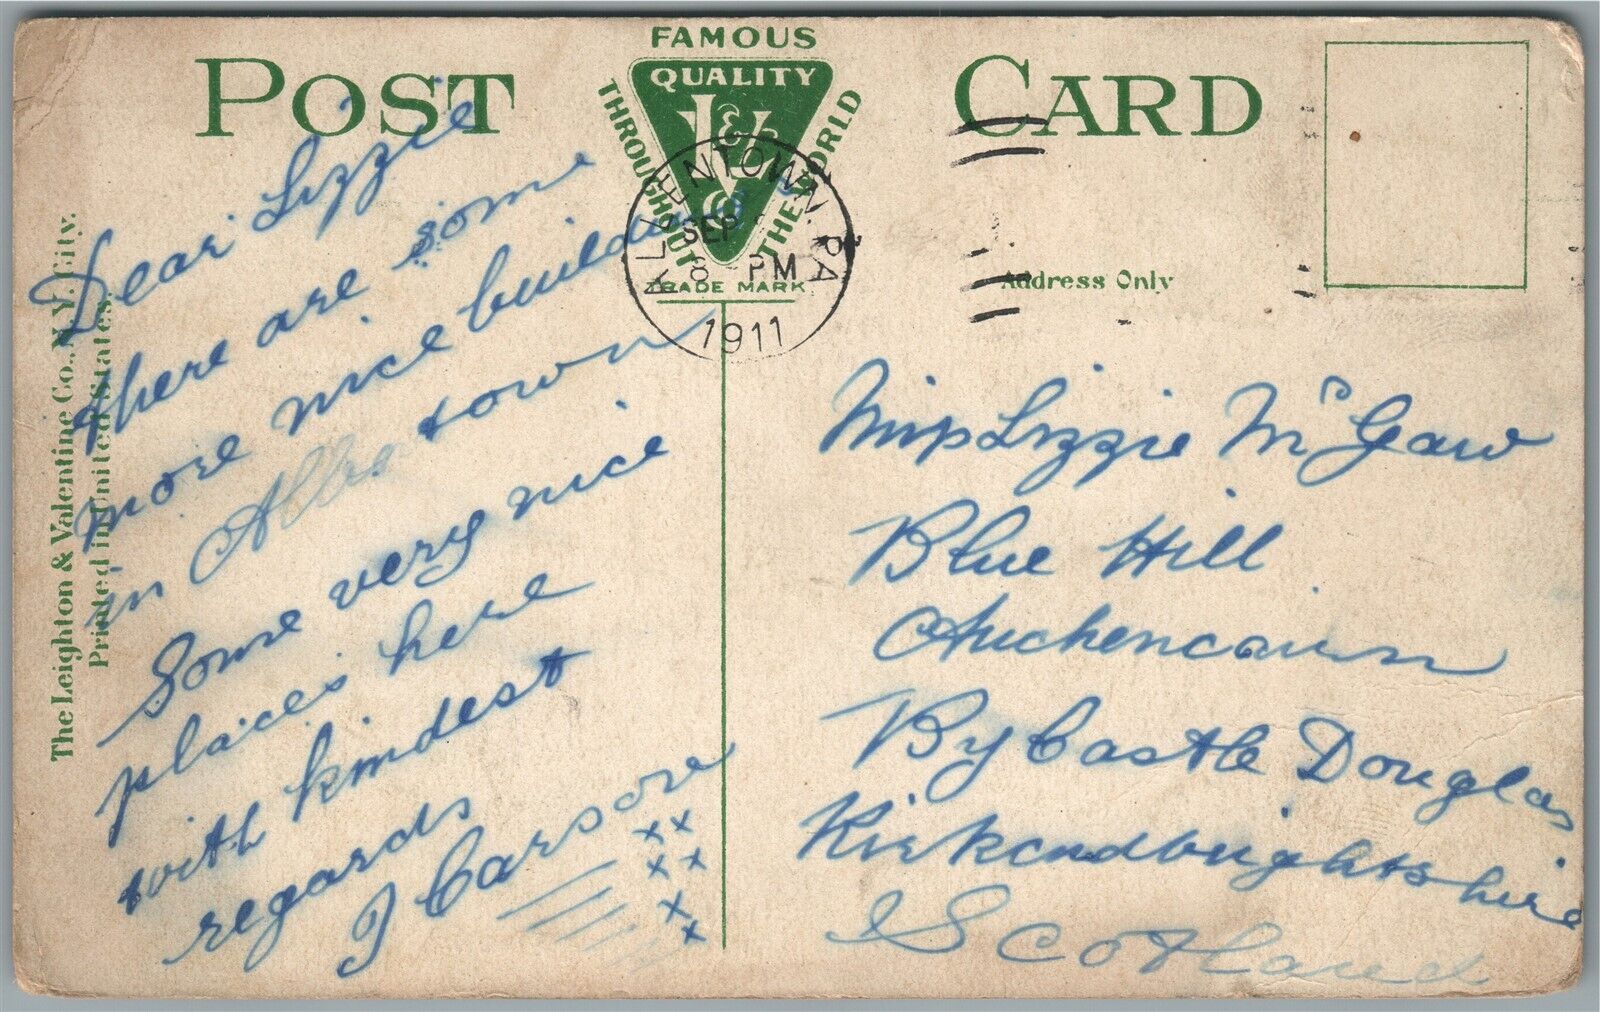 POST CARD
FAMOUS
QUALITY
L & V Co
THROUGHOUT THE WORLD
TRADE MARK
ALLENTOWN, PA
SEP
8 PM
1911
Address Only
The Leighton & Valentine Co., N.Y. City.
Printed in United States.
Dear Lizzie
there are some
more nice buildings
in town
Some very nice
places here
with kindest
regards
J Carson
xx
xx
x
x
Miss Lizzie McGaw
Blue Hill
Auchencairn
By Castle Douglas
Kirkcudbrightshire
Scotland